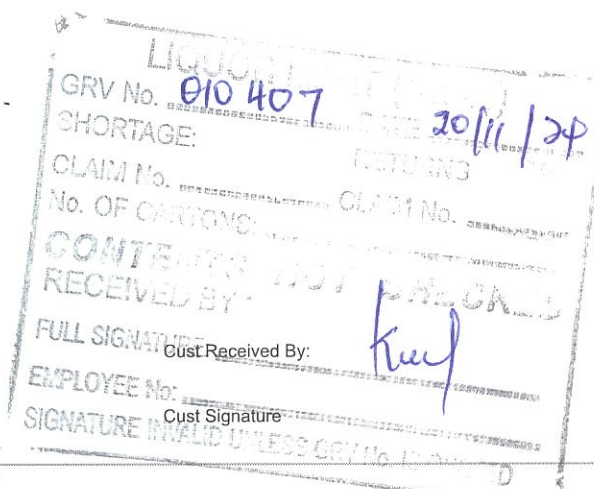 LIQUOR
GRV No. 010407 DATE 20/11/24
SHORTAGE: RETURNS
CLAIM No. CLAIM No.
No. OF CARTONS:
CONTENTS NOT CHECKED
RECEIVED BY
FULL SIGNATURE
Cust Received By:
EMPLOYEE No:
Cust Signature
SIGNATURE INVALID UNLESS GRV No. IS QUOTED